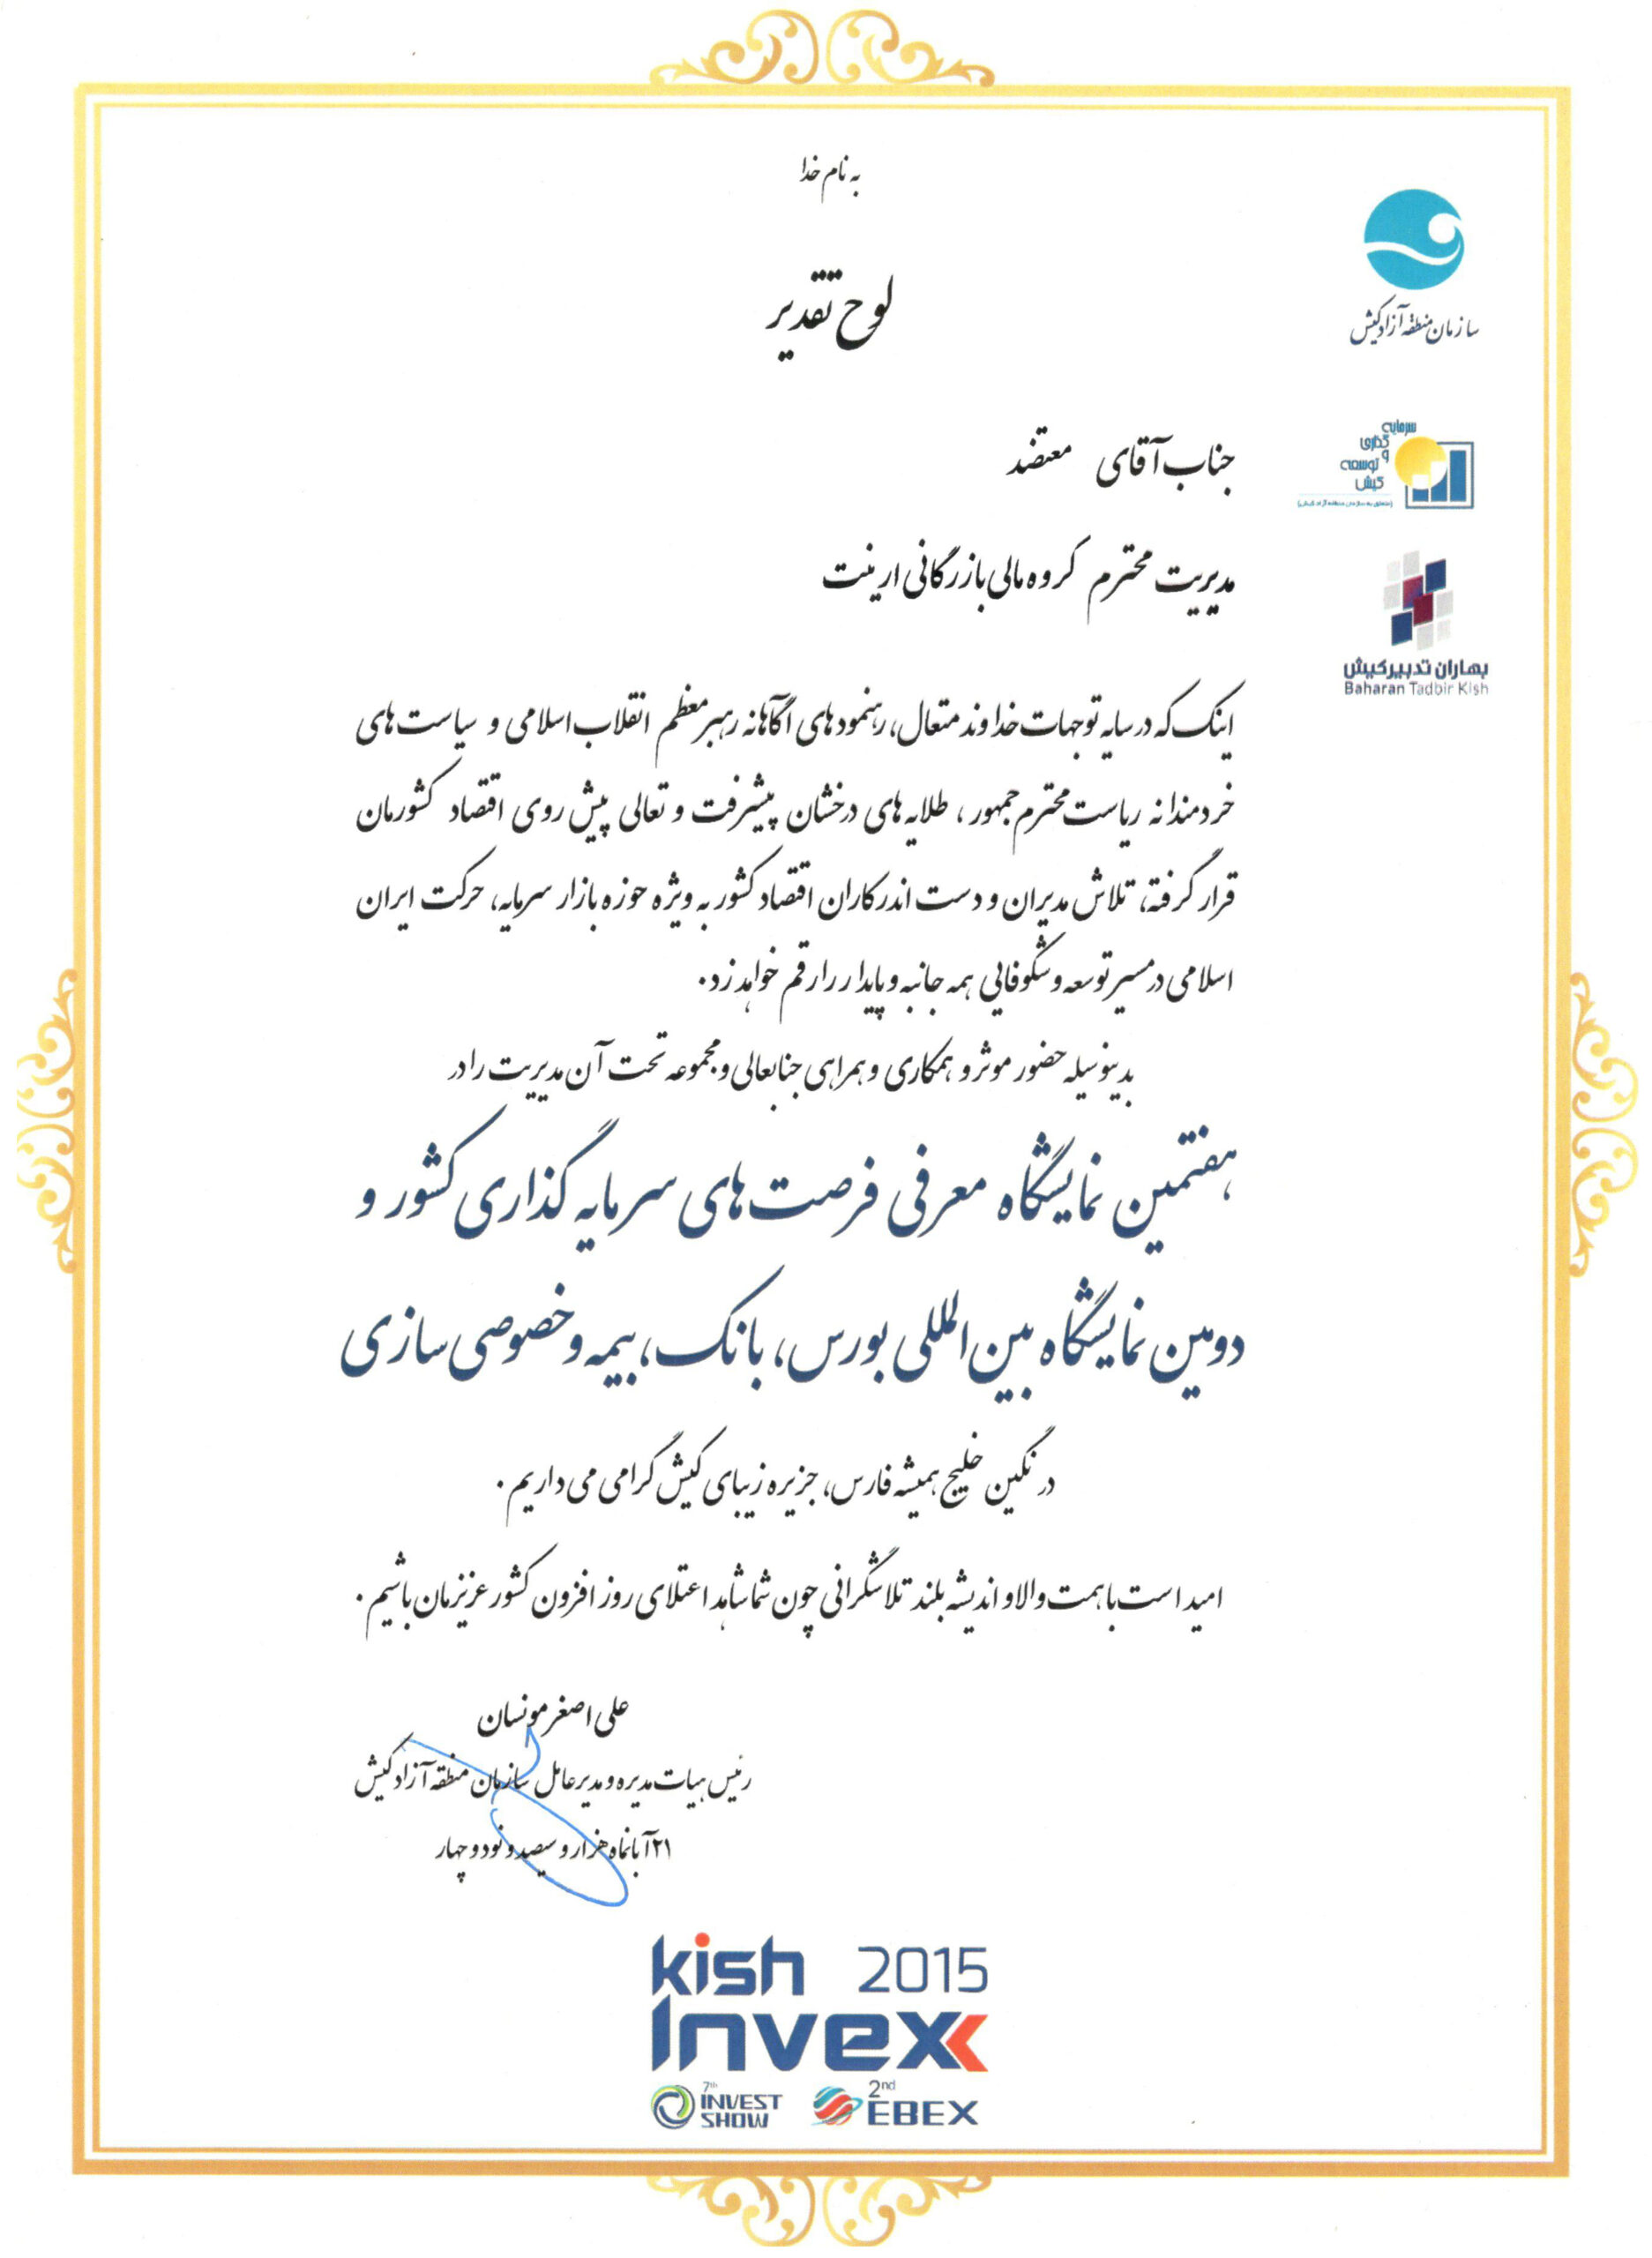 به نام خدا
لوح تقدیر
سازمان منطقه آزاد کیش
سرمایه
گذاری
و
توسعه
کیش
(متعلق به سازمان منطقه آزاد کیش)
بهاران تدبیر کیش
Baharan Tadbir Kish
جناب آقای معتضد
مدیریت محترم گروه مالی بازرگانی ارینت
اینک که در سایه توجهات خداوند متعال، رهنمودهای آگاهانه رهبر معظم انقلاب اسلامی و سیاست های
خردمندانه ریاست محترم جمهور، طلایه های درخشان پیشرفت و تعالی پیش روی اقتصاد کشورمان
قرار گرفته، تلاش مدیران و دست اندرکاران اقتصاد کشور به ویژه حوزه بازار سرمایه، حرکت ایران
اسلامی در مسیر توسعه و شکوفایی همه جانبه و پایدار را رقم خواهد زد.
بدینوسیله حضور موثر و همکاری و همراهی جنابعالی و مجموعه تحت آن مدیریت را در
هفتمین نمایشگاه معرفی فرصت های سرمایه گذاری کشور و
دومین نمایشگاه بین المللی بورس، بانک، بیمه و خصوصی سازی
در نگین خلیج همیشه فارس، جزیره زیبای کیش گرامی می داریم.
امید است با همت والا و اندیشه بلند تلاشگرانی چون شما شاهد اعتلای روز افزون کشور عزیزمان باشیم.
علی اصغر مونسان
رئیس هیات مدیره و مدیرعامل سازمان منطقه آزاد کیش
۲۱ آبانماه هزار و سیصد و نود و چهار
kish 2015
Invex
7th INVEST SHOW
2nd EBEX